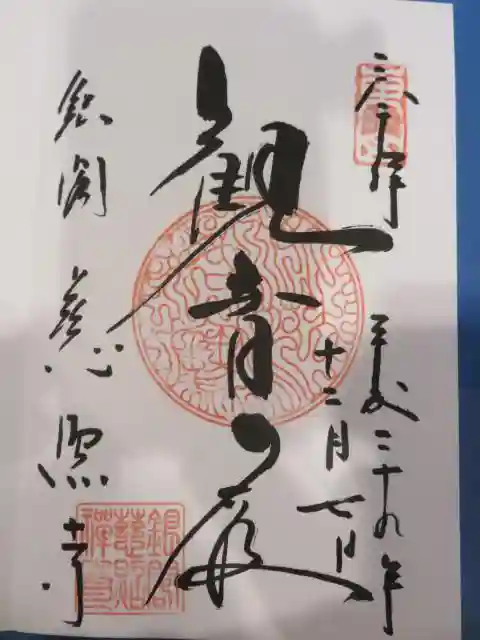 奉拝
平成二十九年
十二月七日
観音殿
銀閣 慈照寺
銀閣
慈照
禅寺